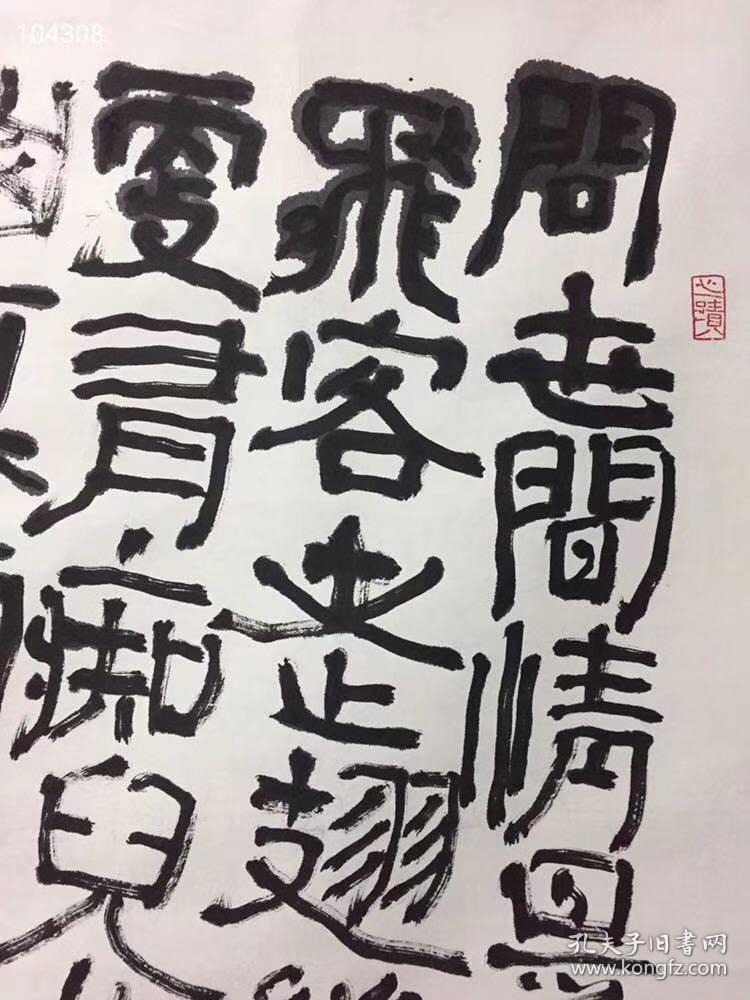 104308
問世間情是
飛客老翅
更有痴兒
心蹟
孔夫子旧書网
www.kongfz.com